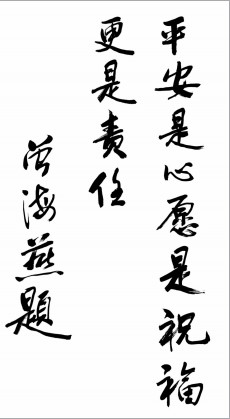 平安是心愿是祝福
更是责任
曾海燕題